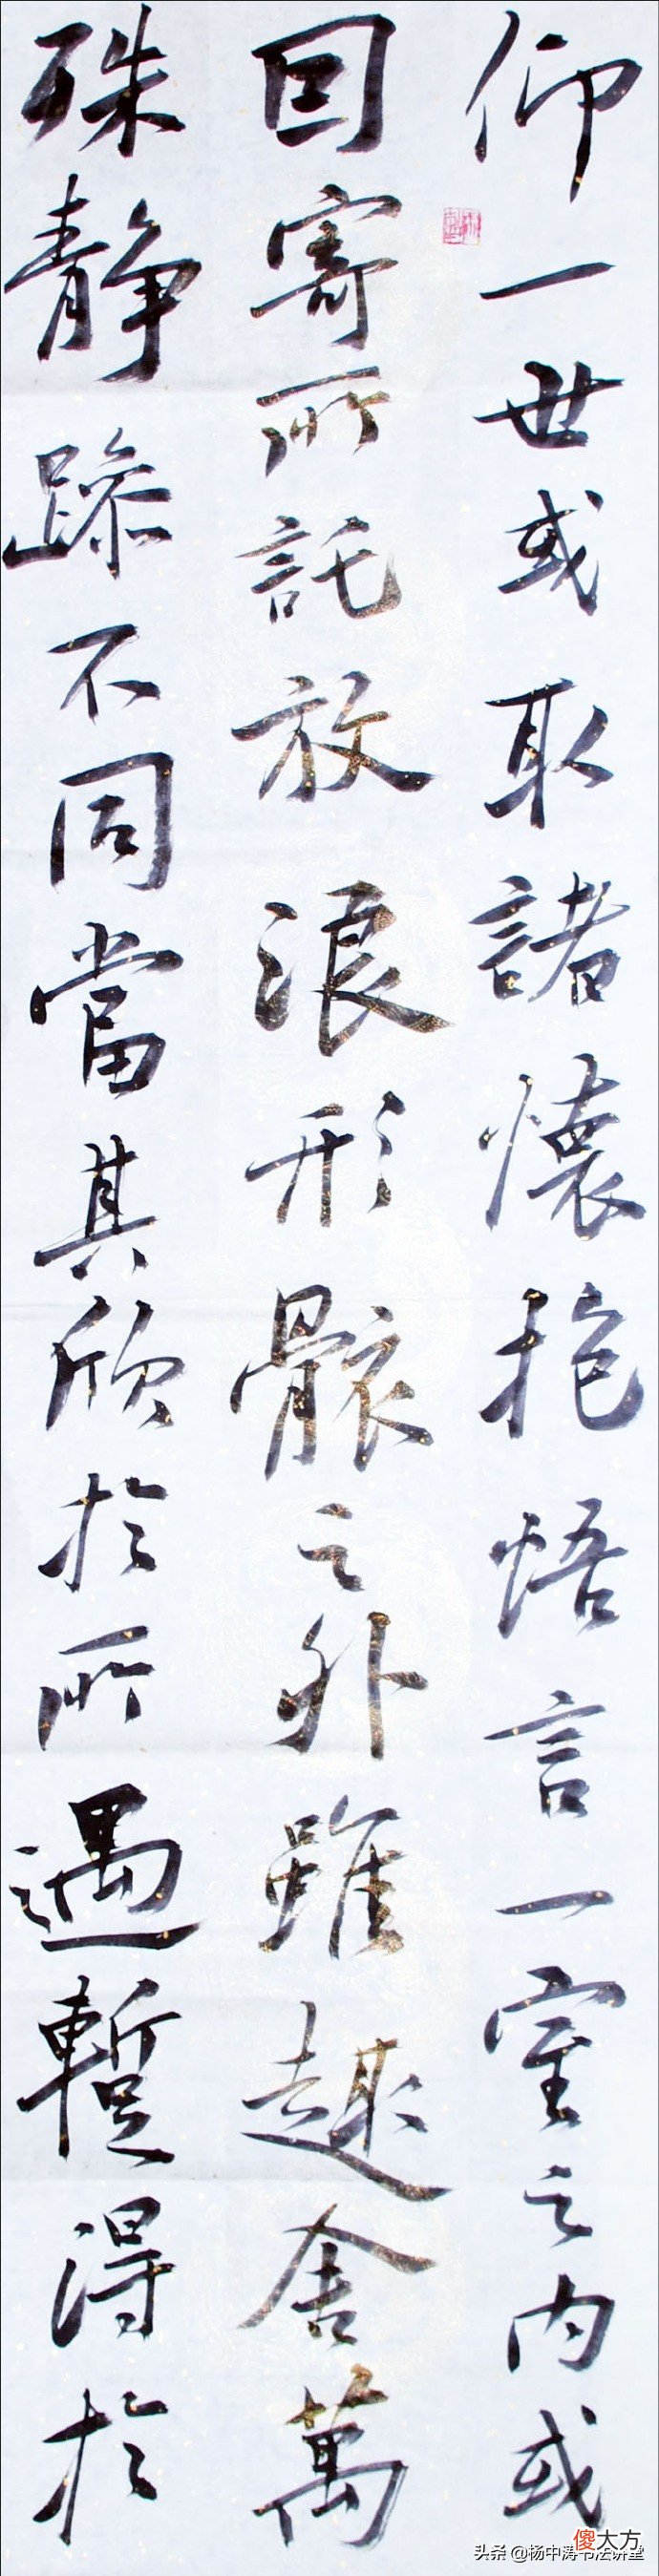 仰一世或取諸懷抱悟言一室之内或
因寄所託放浪形骸之外雖趣舍萬
殊静躁不同當其欣於所遇蹔得於
头条 @杨中涛书法讲堂
傻大方